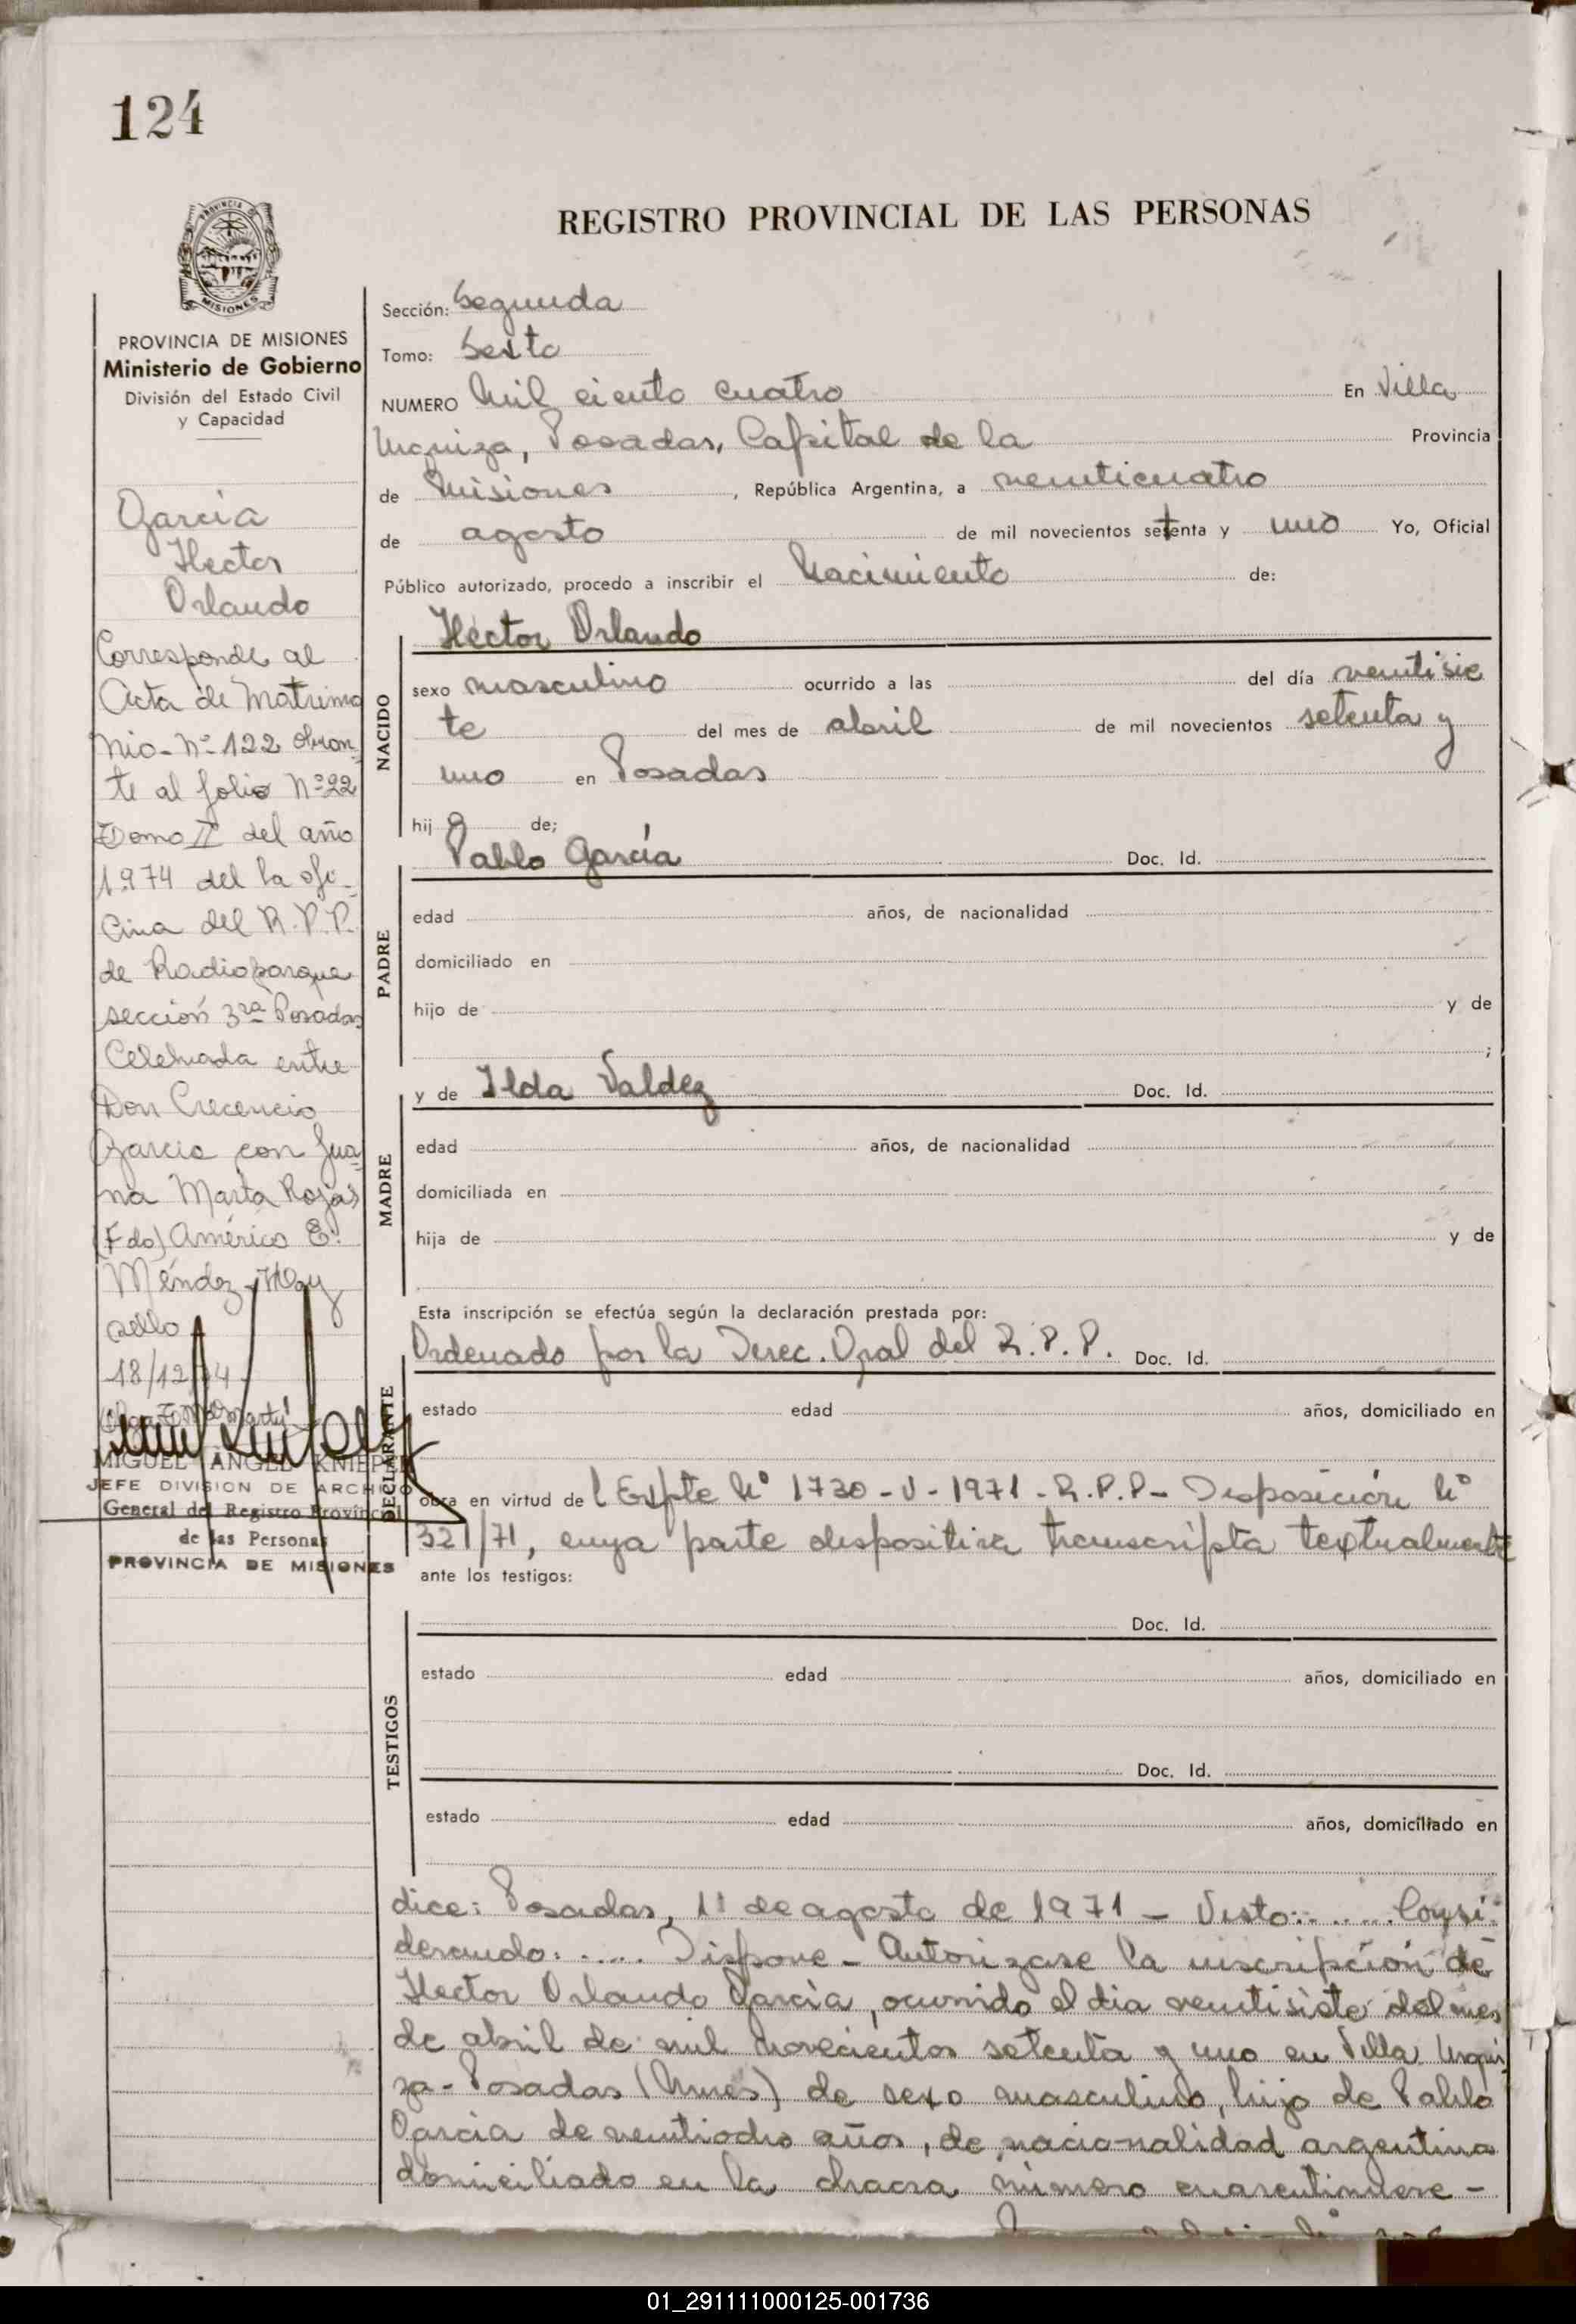 124
REGISTRO PROVINCIAL DE LAS PERSONAS
PROVINCIA DE MISIONES
MISIONES
PROVINCIA DE MISIONES
Ministerio de Gobierno
División del Estado Civil
y Capacidad
García
Hector
Orlando
Corresponde al
Acta de Matrimo
nio-Nº 122 obran
te al folio Nº 22
Tomo II del año
1974 del la ofi-
cina del R.P.P.
de Radioparque
sección 3ra Posadas
Celebrada entre
Don Crecencio
Garcia con Jua
na Marta Rojas
(Fdo) Américo E.
Méndez - Hay
sello
18/12/74
MIGUEL ANGEL KNIEPER
JEFE DIVISION DE ARCHIVO
General del Registro Provincial
de las Personas
PROVINCIA DE MISIONES
Sección: Segunda
Tomo: Sexto
NUMERO Mil ciento cuatro En Villa
Urquiza, Posadas, Capital de la Provincia
de Misiones, República Argentina, a veinticuatro
de agosto de mil novecientos setenta y uno Yo, Oficial
Público autorizado, procedo a inscribir el Nacimiento de:
NACIDO
Hector Orlando
sexo masculino ocurrido a las del día veintisie
te del mes de abril de mil novecientos setenta y
uno en Posadas
hijo de;
PADRE
Pablo García Doc. Id.
edad años, de nacionalidad
domiciliado en
hijo de y de
;
MADRE
y de Ilda Valdez Doc. Id.
edad años, de nacionalidad
domiciliada en
hija de y de
Esta inscripción se efectúa según la declaración prestada por:
DECLARANTE
Ordenado por la Direc. Gral del R.P.P. Doc. Id.
estado edad años, domiciliado en
obra en virtud del Expte Nº 1730-V-1971-R.P.P- Disposición Nº
321/71, cuya parte dispositiva transcripta textualmente
ante los testigos:
TESTIGOS
Doc. Id.
estado edad años, domiciliado en
Doc. Id.
estado edad años, domiciliado en
dice: Posadas, 11 de agosto de 1971 - Visto:...... Consi
derando:..... Dispone - Autorizase la inscripción de
Hector Orlando García, ocurrido el dia veintisiete del mes
de abril de mil novecientos setenta y uno en Villa Urqui
za- Posadas (Mnes) de sexo masculino, hijo de Pablo
Garcia de veintiocho años, de nacionalidad argentina
domiciliado en la chacra número cuarentinueve -
01_291111000125-001736